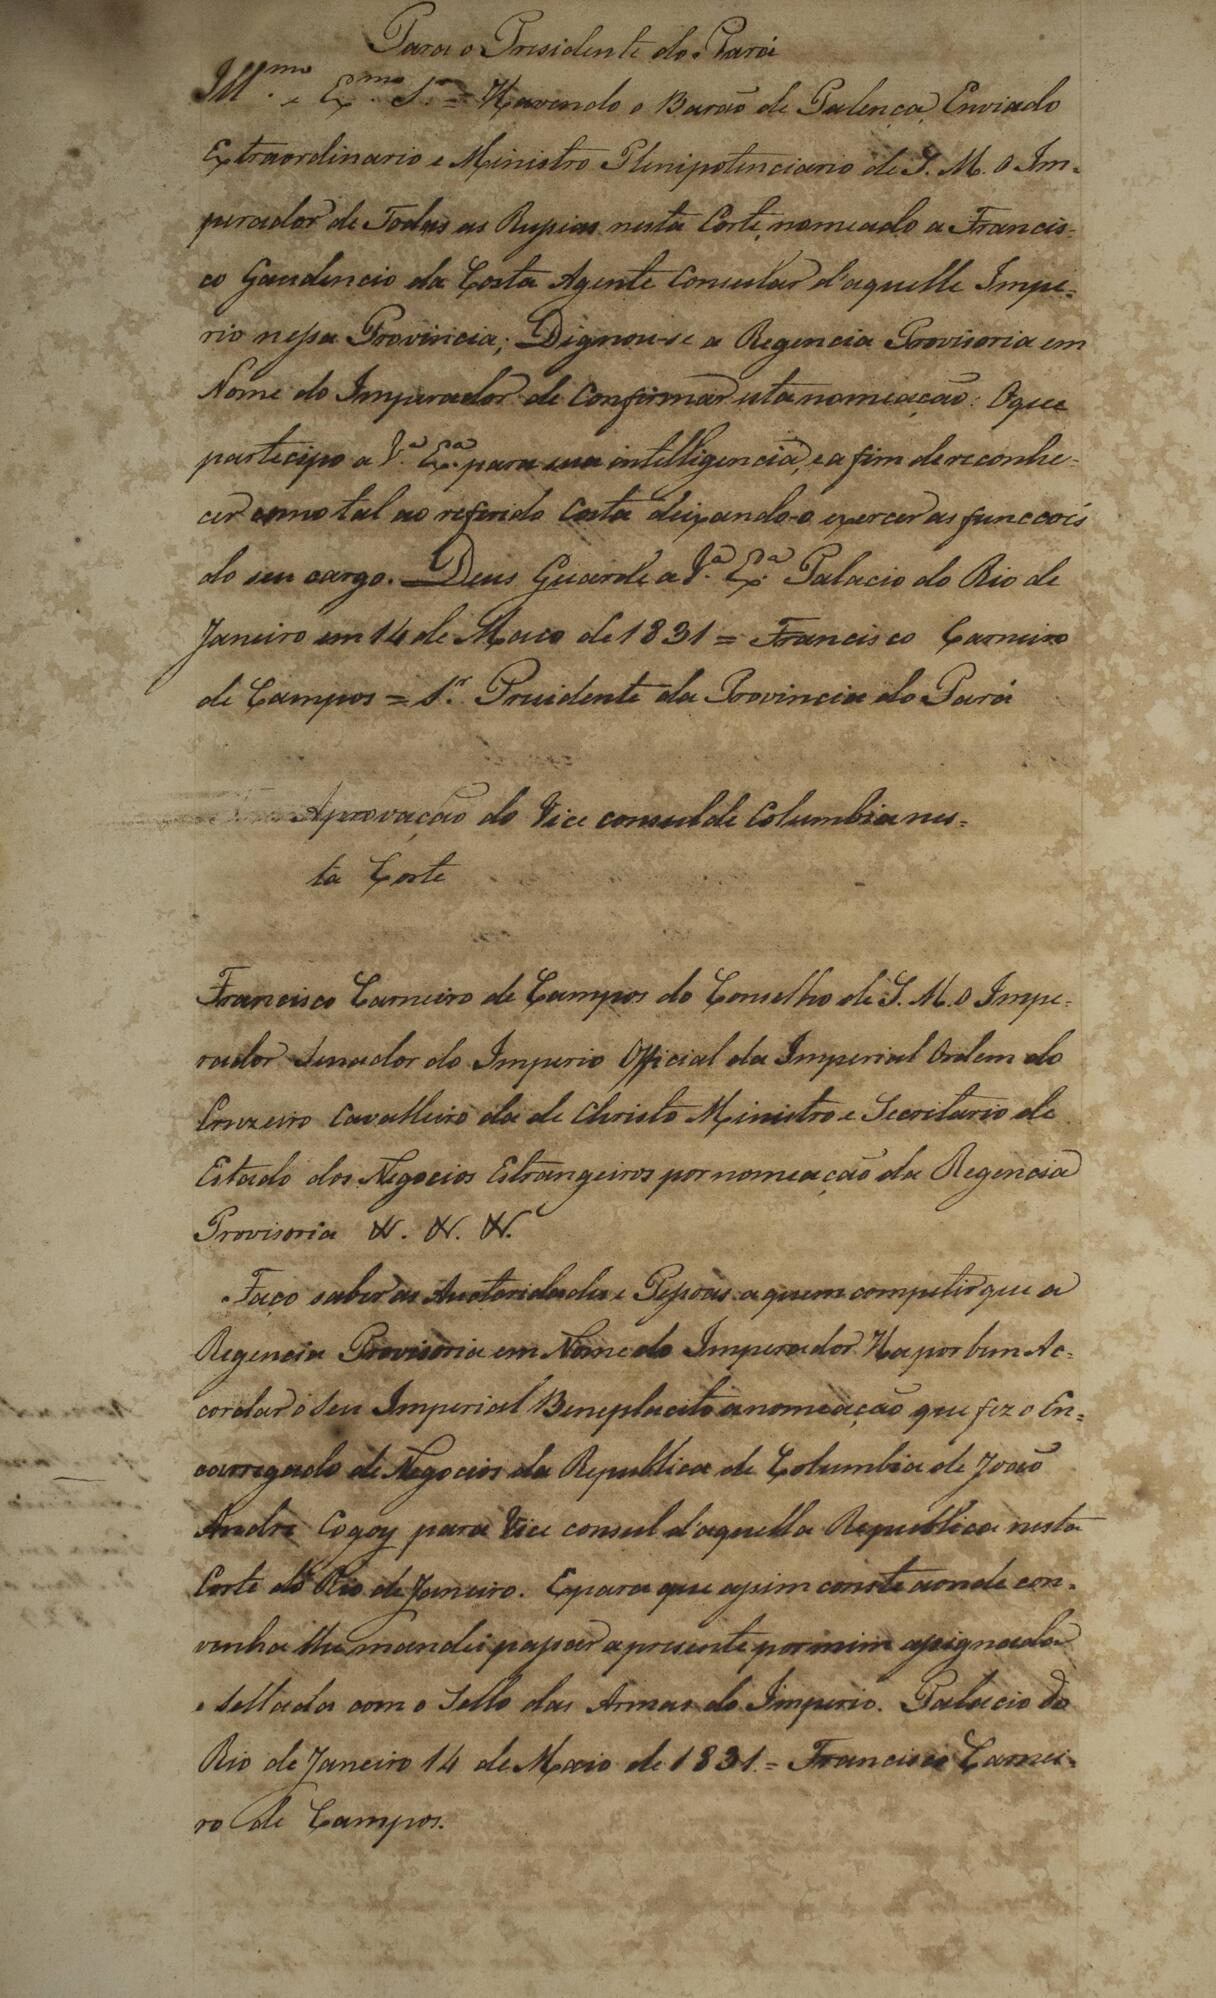 Para o Presidente do Pará
Ill.mo e Ex.mo S.r = Havendo o Barão de Palença, Enviado
Extraordinario e Ministro Plenipotenciario de S. M. O Im-
perador de Todas as Russias nesta Corte, nomeado a Francis-
co Gaudencio da Costa Agente Consular d'aquelle Impe-
rio nessa Provincia; Dignou-se a Regencia Provisoria em
Nome do Imperador de Confirmar esta nomeação: Oque
partecipo a V.a Ex.a para sua intelligencia, e a fim de reconhe-
cer como tal ao referido Costa deixando-o exercer as funccois
do seu cargo. Deus Guarde a V.a Ex.a Palacio do Rio de
Janeiro em 14 de Maio de 1831 = Francisco Carneiro
de Campos = S.r Presidente da Provincia do Pará
Aprovação do Vice consul de Columbia nes-
ta Corte
Francisco Carneiro de Campos do Conselho de S. M. O Impe-
rador Senador do Imperio Official da Imperial Ordem do
Cruzeiro Cavalleiro da de Christo Ministro e Secretario de
Estado dos Negocios Estrangeiros por nomeação da Regencia
Provisoria &. &. &.
Faço saber as Auctoridades e Pessoas a quem competir que a
Regencia Provisoria em Nome do Imperador Ha por bem Ac-
cordar o Seu Imperial Beneplacito a nomeação que fez o En-
carregado de Negocios da Republica de Columbia de João
Andre Cogoy para Vice consul d'aquella Republica nesta
Corte do Rio de Janeiro. E para que assim conste aonde con-
venha lhe mandei passar a presente por mim assignada
e sellada com o Sello das Armas do Imperio. Palacio do
Rio de Janeiro 14 de Maio de 1831. = Francisco Carnei-
ro de Campos.